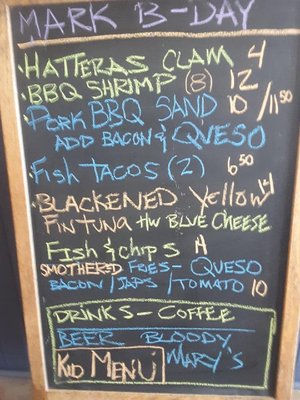 MARK B-DAY
HATTERAS CLAM 4
BBQ SHRIMP (8) 12
PORK BBQ SAND 10 / 11 50
ADD BACON & QUESO
Fish TACOS (2) 6 50
BLACKENED Yellow 14
FIN TUNA HW BLUE CHEESE
Fish & chips 14
SMOTHERED FRIES - QUESO
BACON / JAPS / TOMATO 10
DRINKS - COFFEE
BEER BLOODY
MARY'S
KID MENU